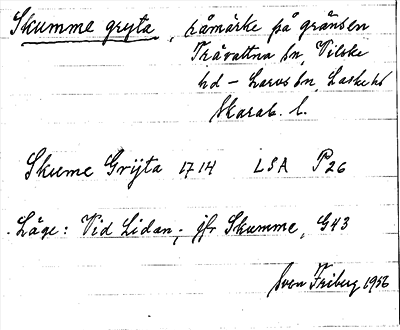 Skumme gryta, råmärke på gränsen
Tråvattna sn, Vilske
hd - Larvs sn, Laske hd
Skarab. l.
Skume Grijta 1714 LSA P26
Läge: Vid Lidan, jfr Skumme, G43
Sven Friberg 1956